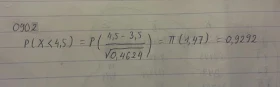 090Z
P(X ≤ 4,5) = P( (4,5 - 3,5) / √0,4624 ) = Π(1,47) = 0,9292